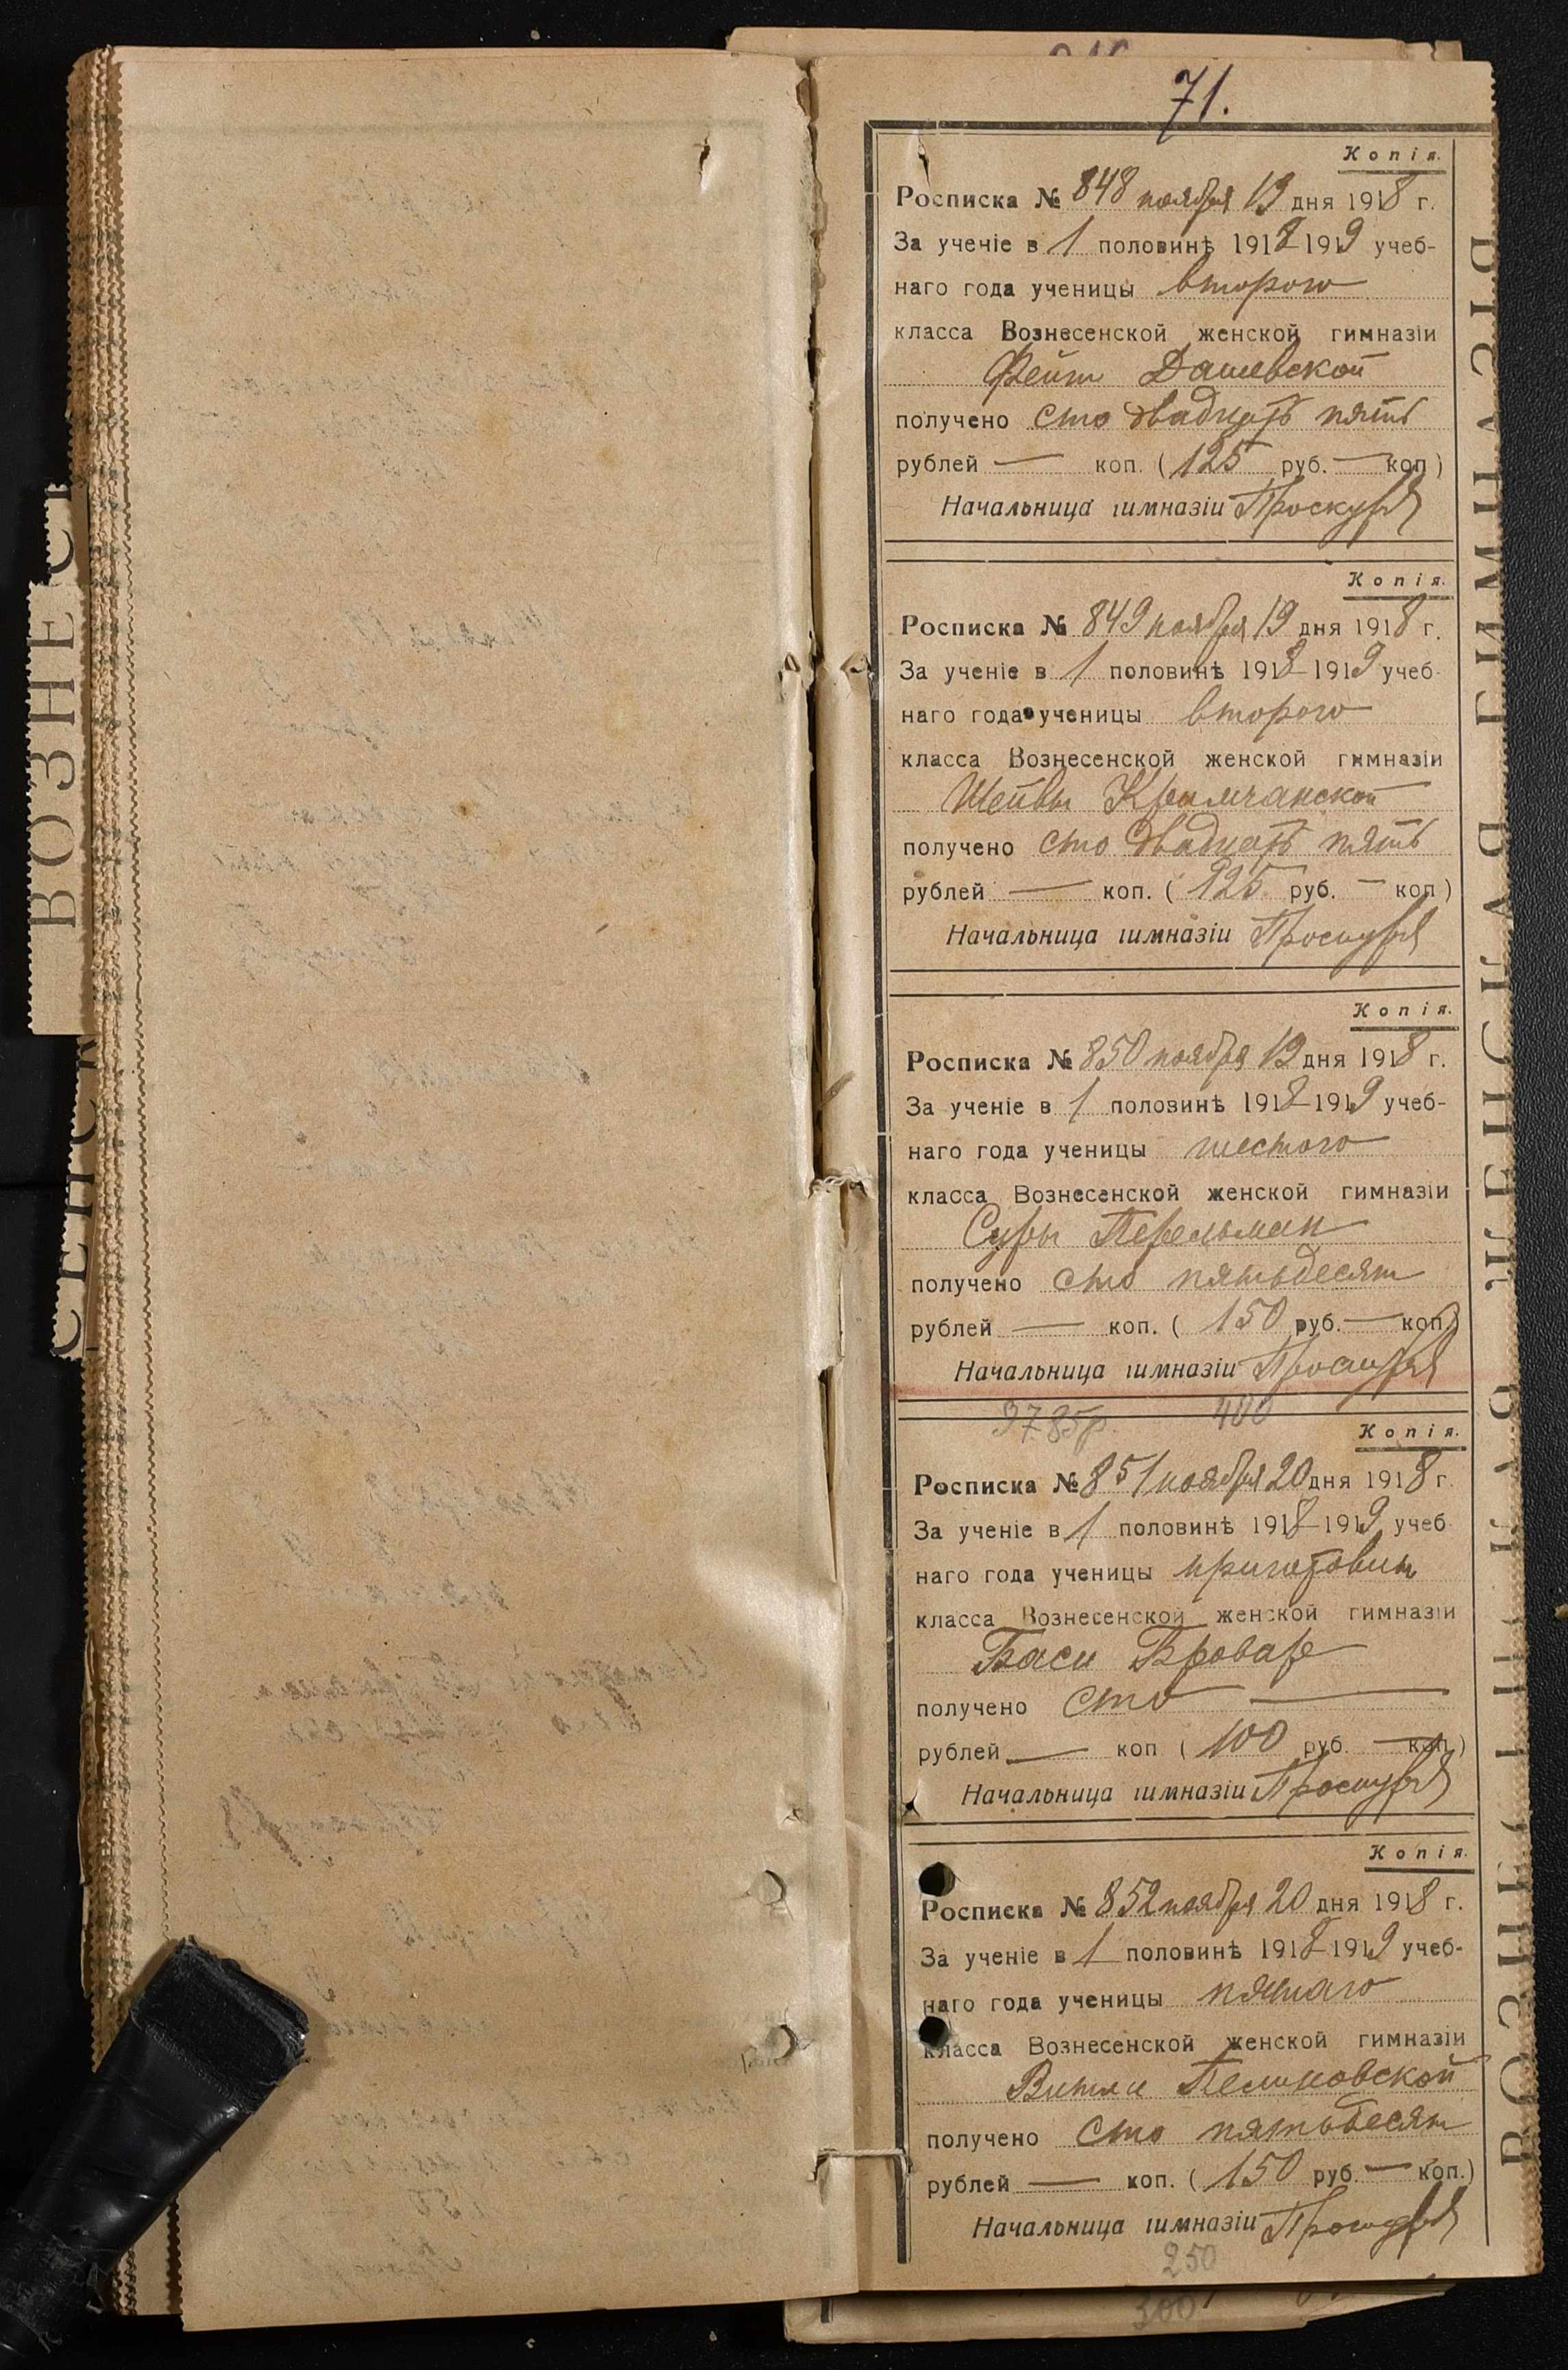 71.
Копія.
Росписка № 848 ноября 19 дня 1918 г.
За ученіе в 1 половинѣ 1918-1919 учеб-
наго года ученицы второго
класса Вознесенской женской гимназіи
Фейги Дашевской
получено сто двадцать пять
рублей — коп. (125 руб. — коп)
Начальница гимназіи Проскуря
Копія.
Росписка № 849 ноября 19 дня 1918 г.
За ученіе в 1 половинѣ 1918-1919 учеб-
наго года ученицы второго
класса Вознесенской женской гимназіи
Шейвы Крымчанской
получено сто двадцать пять
рублей — коп. (125 руб. — коп)
Начальница гимназіи Проскуря
Копія.
Росписка № 850 ноября 19 дня 1918 г.
За ученіе в 1 половинѣ 1918-1919 учеб-
наго года ученицы шестого
класса Вознесенской женской гимназіи
Суры Перельман
получено сто пятьдесят
рублей — коп. (150 руб. — коп.)
Начальница гимназіи Проскуря
3785р. 400
Копія.
Росписка № 851 ноября 20 дня 1918 г.
За ученіе в 1 половинѣ 1918-1919 учеб
наго года ученицы приготовит
класса Вознесенской женской гимназіи
Баси Бровар
получено сто —
рублей — коп (100 руб. — коп.)
Начальница гимназіи Проскуря
Копія.
Росписка № 852 ноября 20 дня 1918 г.
За ученіе в 1 половинѣ 1918-1919 учеб-
наго года ученицы пятаго
класса Вознесенской женской гимназіи
получено сто пятьдесят
рублей — коп. (150 руб. — коп.)
Начальница гимназіи Проскуря
250
300
ВОЗНЕС